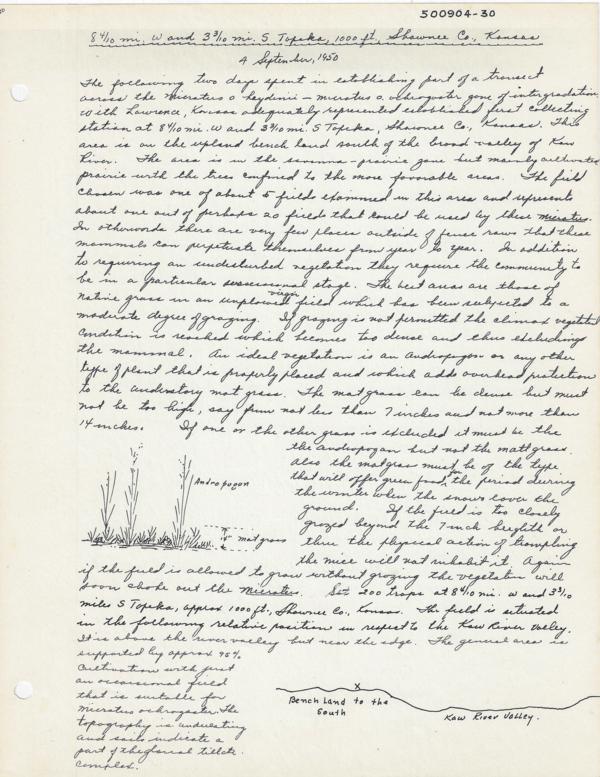 500904-30
8 4/10 mi. W and 3 3/10 mi. S Topeka, 1000 ft., Shawnee Co., Kansas
4 September, 1950
The following two days spent in establishing part of a transect
across the Microtus o haydenii - microtus o. ochrogaster zone of intergradation.
With Lawrence, Kansas adequately represented established first collecting
station at 8 4/10 mi. W and 3 3/10 mi. S Topeka, Shawnee Co., Kansas. This
area is on the upland bench land south of the broad valley of Kaw
River. The area is in the savanna-prairie zone but mainly cultivated
prairie with the trees confined to the more favorable areas. The field
chosen was one of about 5 fields examined in this area and represents
about one out of perhaps 20 fields that could be used by these microtus.
In otherwords there are very few places outside of fence rows that these
mammals can perpetuate themselves from year to year. In addition
to requiring an undisturbed vegetation they require the community to
be in a particular successional stage. The best areas are those of
native grass in an unplowed virgin field which has been subjected to a
moderate degree of grazing. If grazing is not permitted the climax vegetated
condition is reached which becomes too dense and thus excluding
the mammal. An ideal vegetation is an Andropogon or any other
type of plant that is properly placed and which adds overhead protection
to the understory mat grass. The mat grass can be dense but must
not be too high, say from not less than 7 inches and not more than
14 inches. If one or the other grass is excluded it must be the
the andropogan but not the matt grass.
Also the matgrass must be of the type
that will offer green food for the period during
the winter when the snows cover the
ground. If the field is too closely
grazed beyond the 7 inch heighth or
thru the physical action of trampling
the mice will not inhabit it. Again
Andropogon
mat grass
if the field is allowed to grow without grazing the vegetation will
soon choke out the Microtus. Set 200 traps at 8 4/10 mi. W and 3 3/10
miles S Topeka, approx 1000 ft., Shawnee Co., Kansas. The field is situated
in the following relative position in respect to the Kaw River Valley.
It is above the river valley but near the edge. The general area is
supported by approx 95%
cultivation with just
an occasional field
that is suitable for
microtus ochrogaster. The
topography is undulating
and soils indicate a
part of the glacial till
complex.
x
Bench Land to the
South
Kaw River Valley.